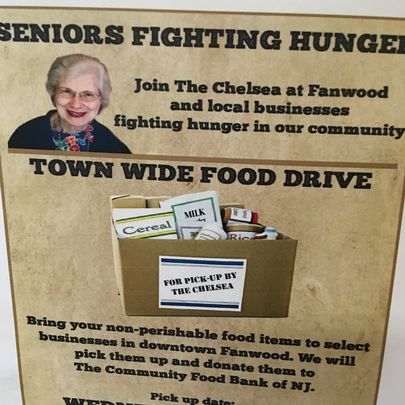 SENIORS FIGHTING HUNGER
Join The Chelsea at Fanwood
and local businesses
fighting hunger in our community
TOWN WIDE FOOD DRIVE
MILK
Cereal
FOR PICK-UP BY
THE CHELSEA
Bring your non-perishable food items to select
businesses in downtown Fanwood. We will
pick them up and donate them to
The Community Food Bank of NJ.
Pick up date: